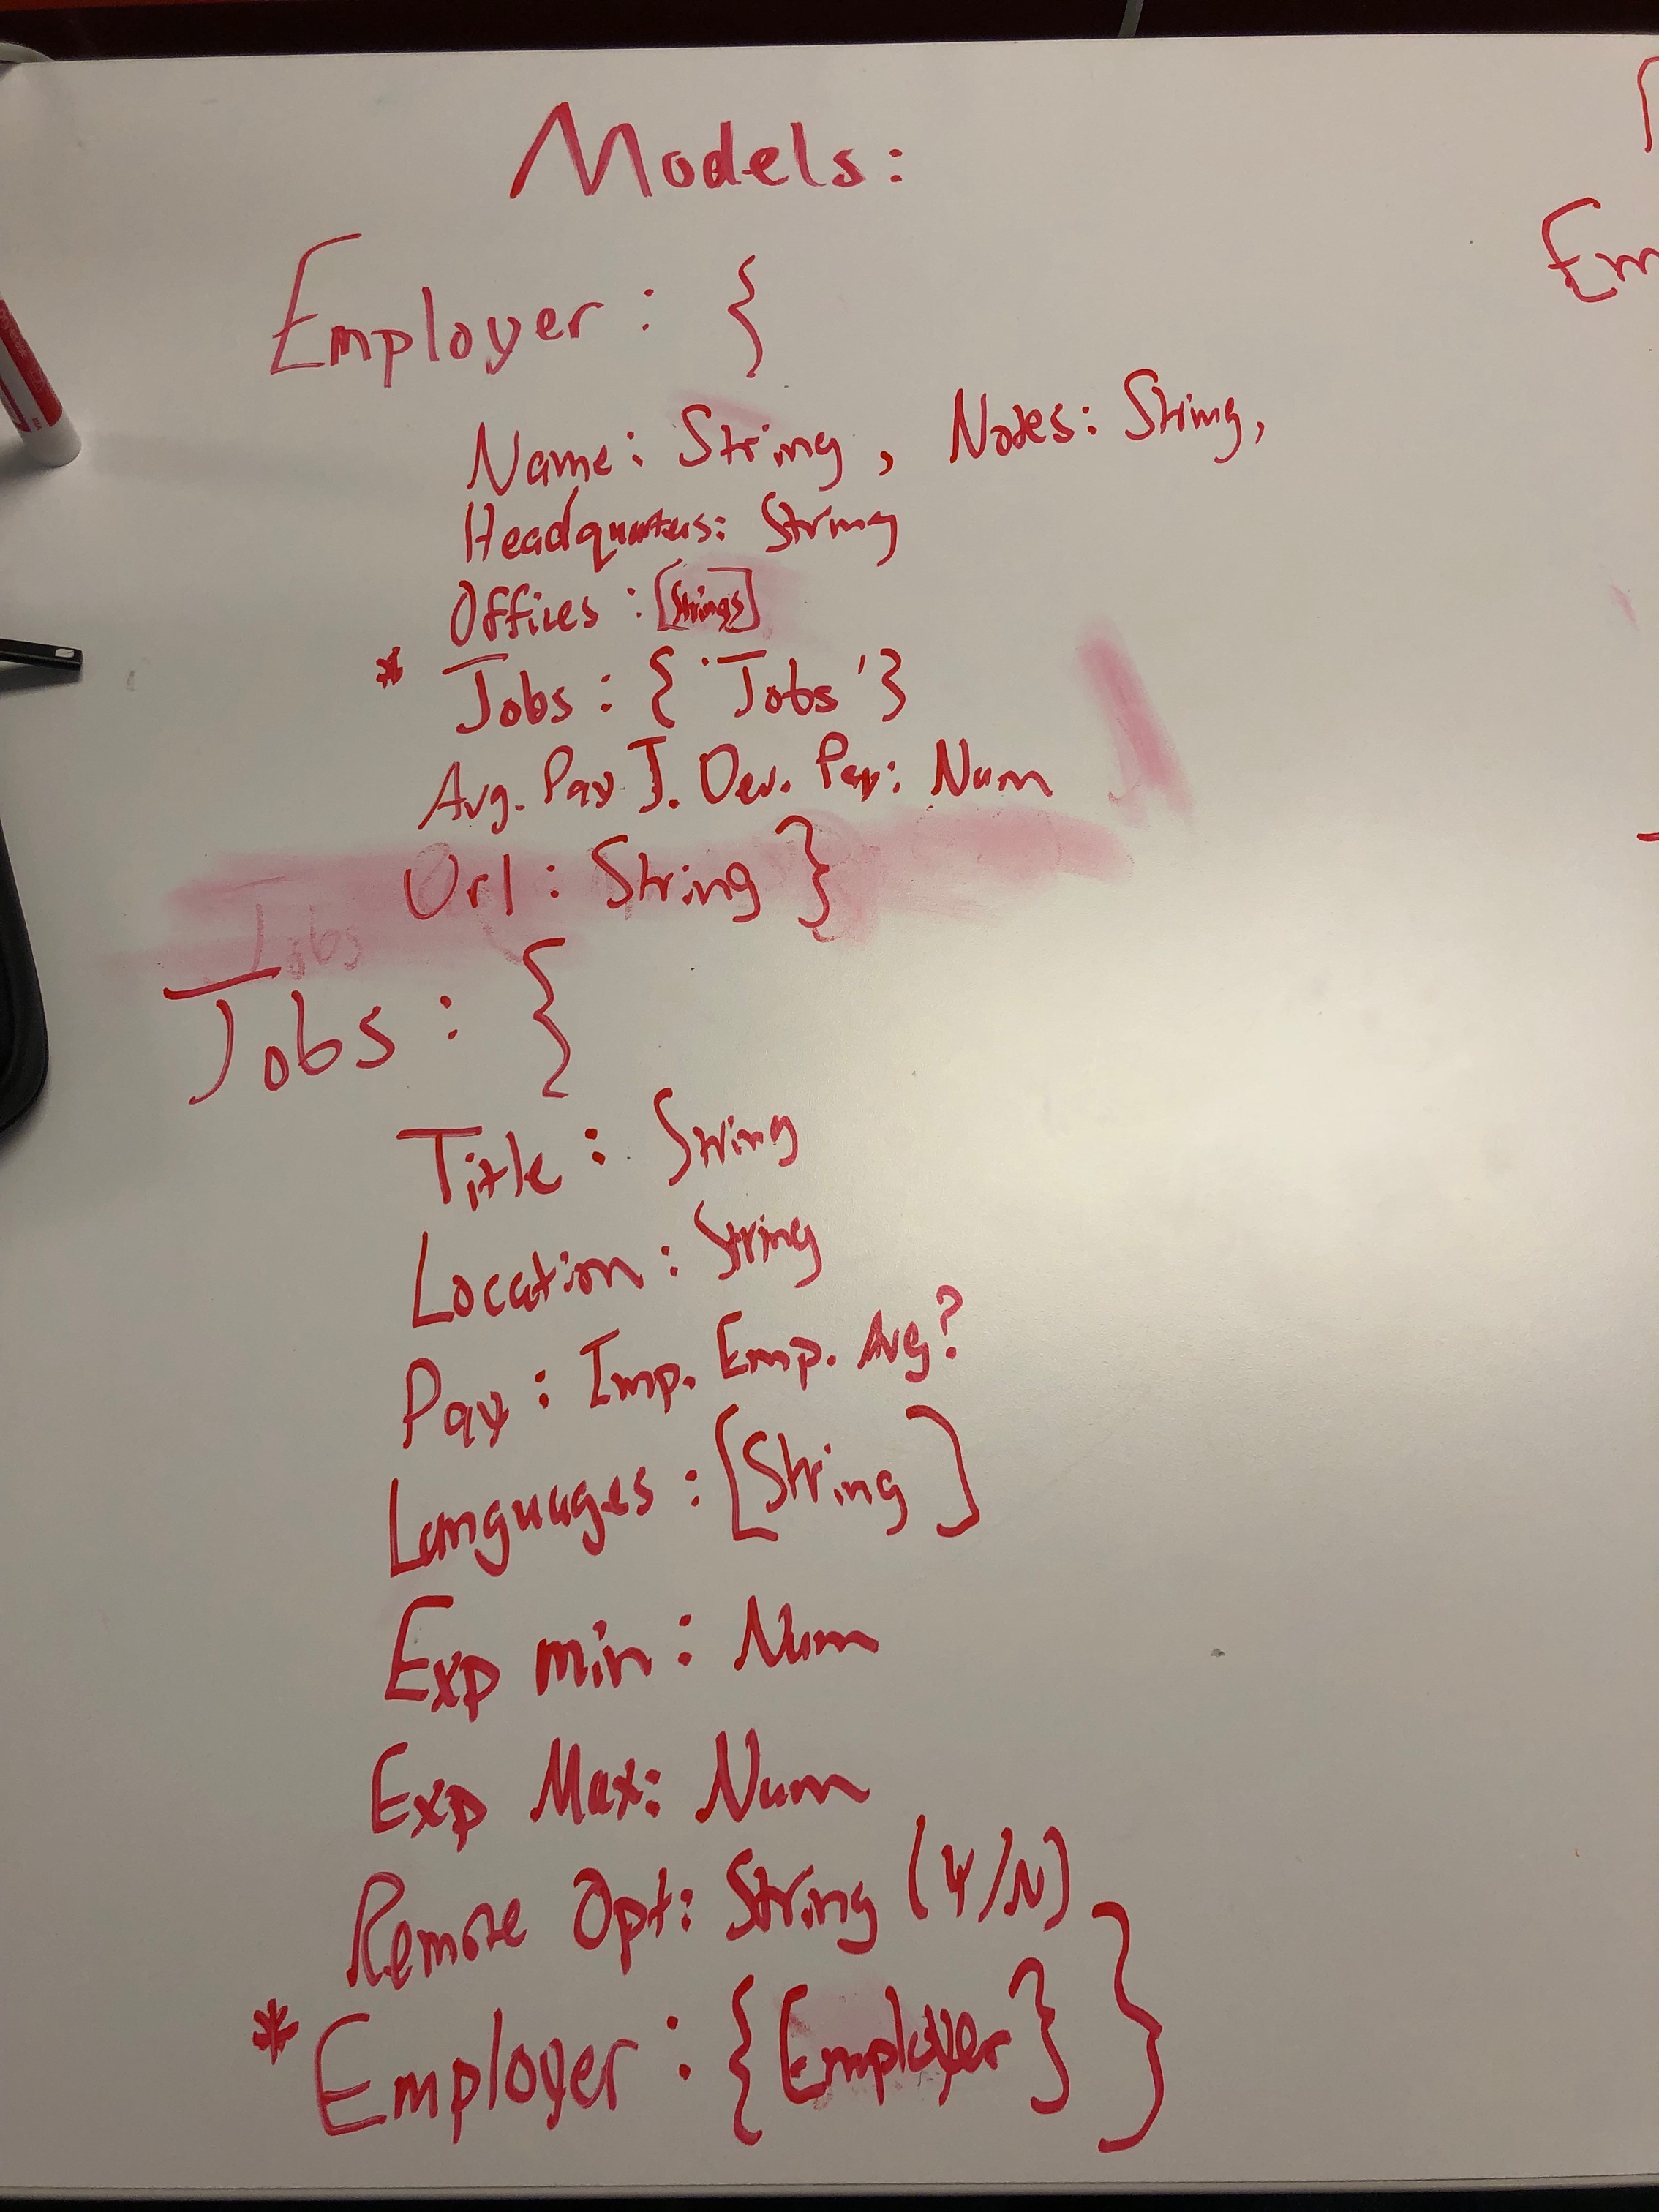 Models:
Employer: {
Name: String, Notes: String,
Headquarters: String
Offices: [Strings]
* Jobs: {'Jobs'}
Avg. Pay J. Dev. Pay: Num
Url: String }
Jobs
Jobs: {
Title: String
Location: String
Pay: Imp. Emp. Avg?
Languages: [String]
Exp min: Num
Exp Max: Num
Remote Opt: String (Y/N)
* Employer: {Employer} }
Em